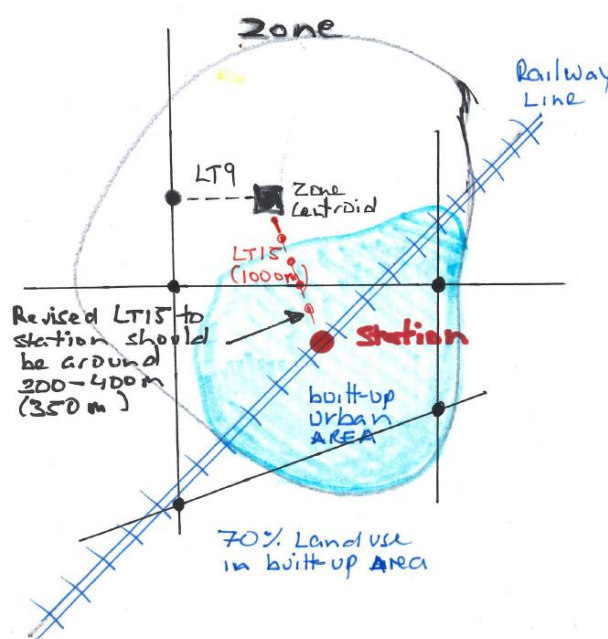 Zone
Railway
Line
LT9
Zone
Centroid
LT15
(1000m)
Revised LT15 to
station should
be around
200-400m
(350m)
Station
built-up
urban
AREA
70% Land use
in built-up Area